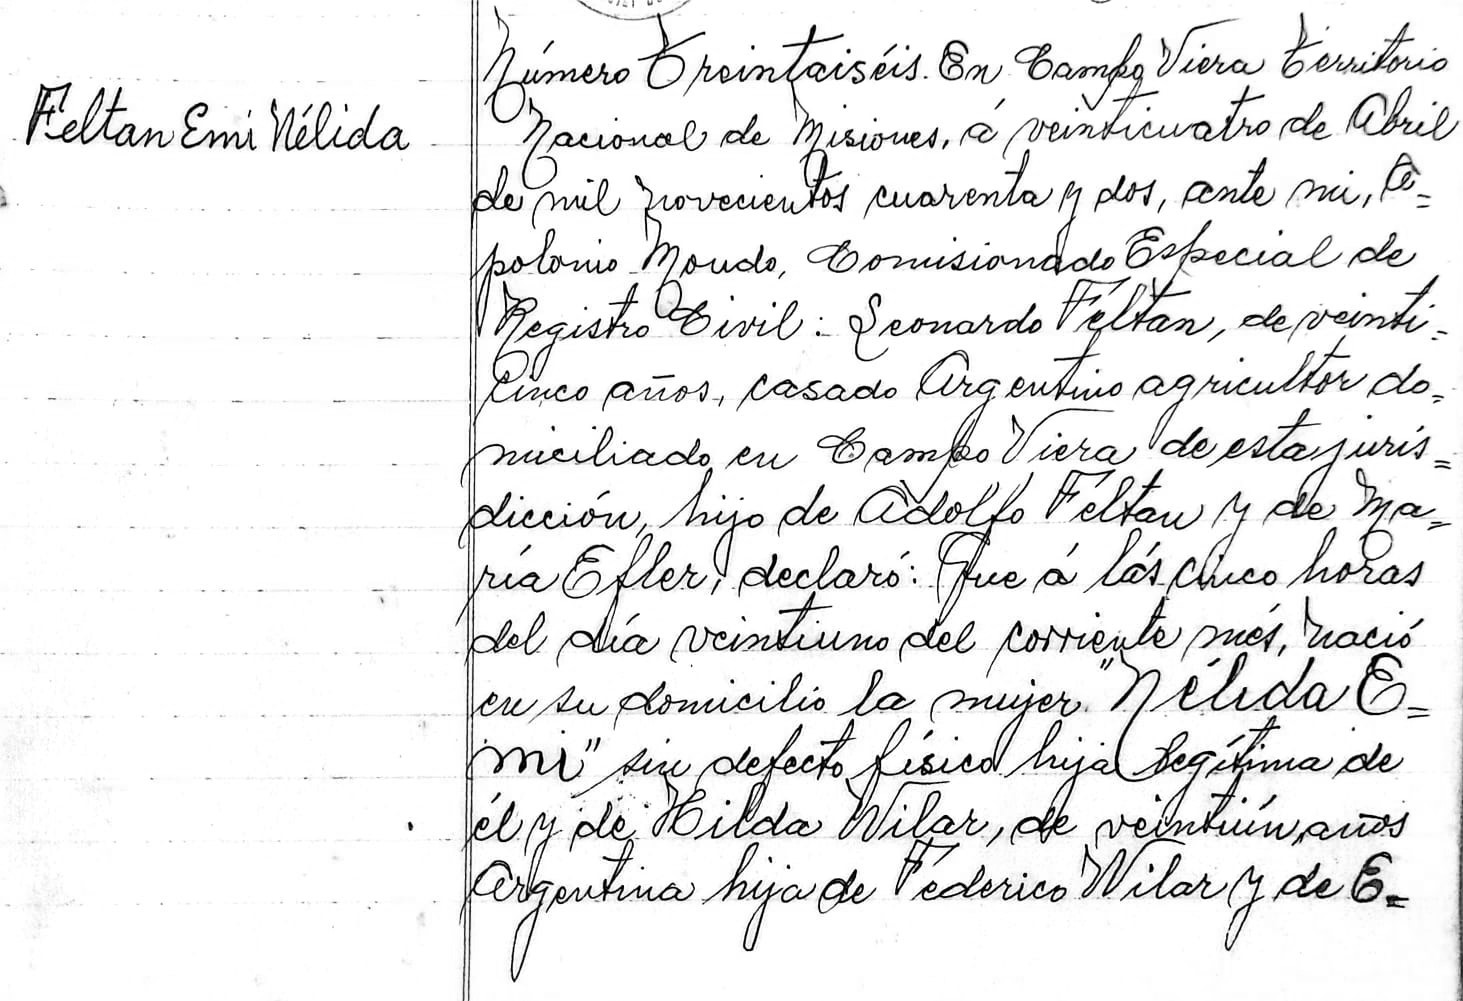 Feltan Emi Nélida
Número Treintaiséis. En Campo Viera Territorio
Nacional de Misiones, á veinticuatro de Abril
de mil novecientos cuarenta y dos, ante mi, A=
polonio Moudo, Comisionado Especial de
Registro Civil: Leonardo Feltan, de veinti=
cinco años, casado Argentino agricultor do=
miciliado en Campo Viera de esta juris=
dicción, hijo de Adolfo Feltan y de Ma=
ría Efler, declaró: Que á lás cinco horas
del día veintiuno del corriente més, nació
en su domicilio la mujer "Nélida E=
mi" sin defecto físico hija legítima de
él y de Hilda Wilar, de veintiún años
Argentina hija de Federico Wilar y de E=